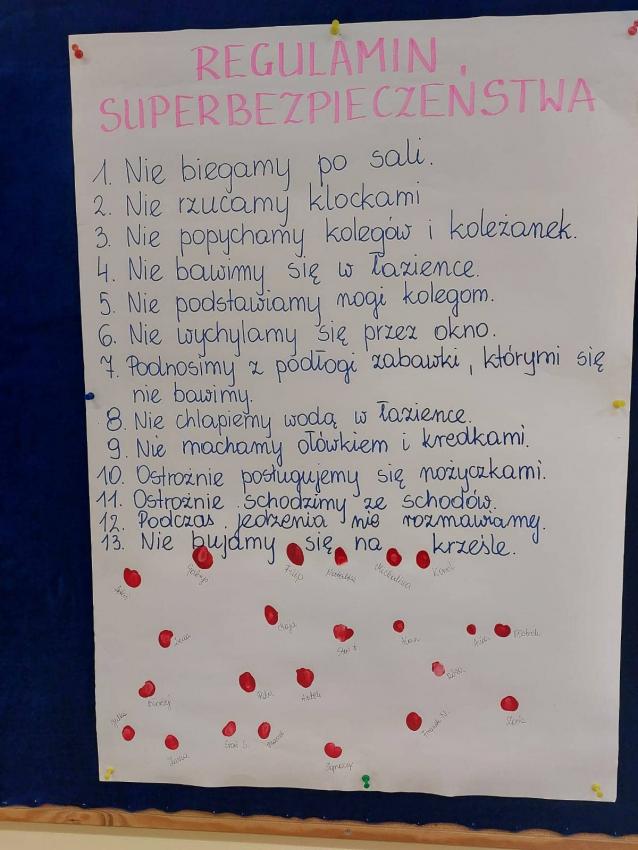 REGULAMIN
SUPERBEZPIECZEŃSTWA
1. Nie biegamy po sali.
2. Nie rzucamy klockami
3. Nie popychamy kolegów i koleżanek.
4. Nie bawimy się w łazience.
5. Nie podstawiamy nogi kolegom.
6. Nie wychylamy się przez okno.
7. Podnosimy z podłogi zabawki, którymi się
nie bawimy.
8. Nie chlapiemy wodą w łazience.
9. Nie machamy ołówkiem i kredkami.
10. Ostrożnie posługujemy się nożyczkami.
11. Ostrożnie schodzimy ze schodów.
12. Podczas jedzenia nie rozmawiamy.
13. Nie bujamy się na krześle.
Filip Natalka Michalina Karol
Maja
Antek
Franek